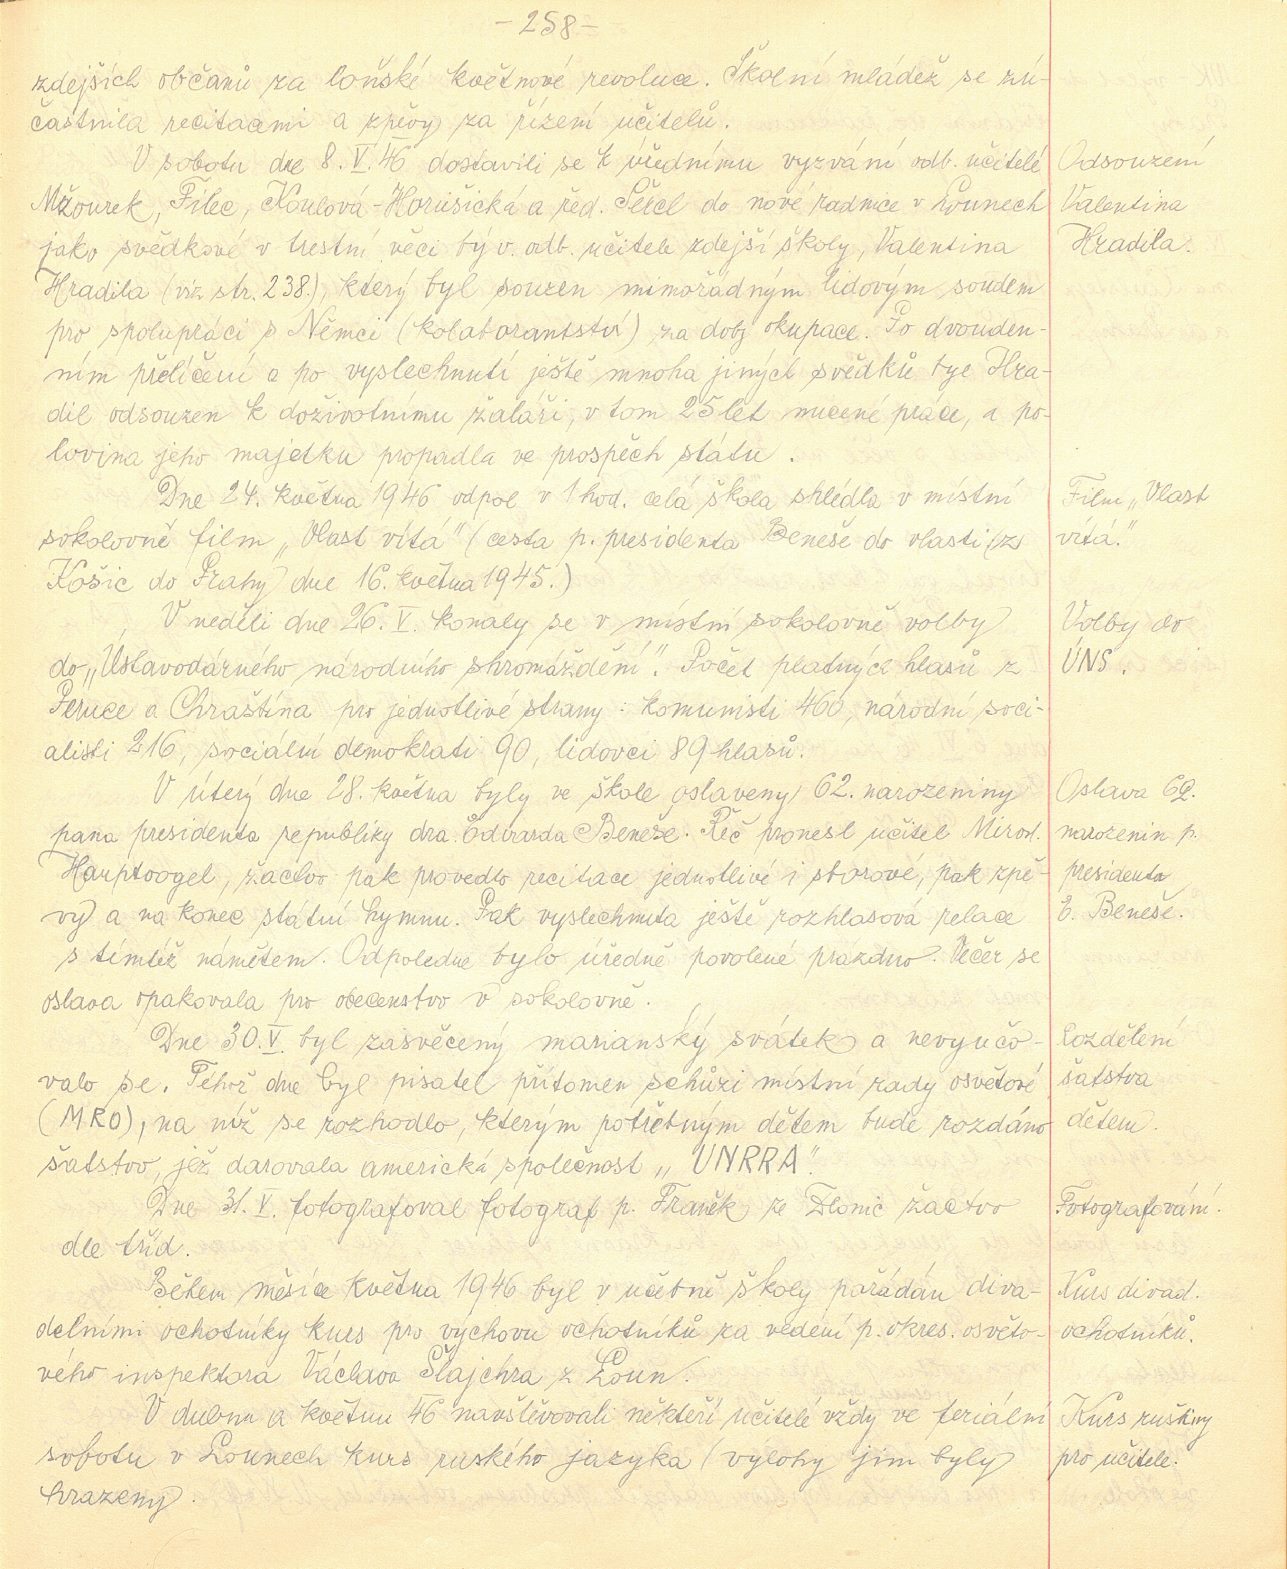 - 258 -
zdejších občanů za loňské květnové revoluce. Školní mládež se zú-
častnila recitacemi a zpěvy za řízení učitelů.
V sobotu dne 8. V. 46 dostavili se k úřednímu vyzvání odb. učitelé
Mžourek, Filec, Koulová-Horušická a řed. Šércl do nové radnice v Lounech
jako svědkové v trestní věci býv. odb. učitele zdejší školy, Valentina
Hradila (viz str. 238.), který byl souzen mimořádným lidovým soudem
pro spolupráci s Němci (kolaborantství) za doby okupace. Po dvouden-
ním přelíčení a po vyslechnutí ještě mnoha jiných svědků byl Hra-
dil odsouzen k doživotnímu žaláři, v tom 25 let nucené práce, a po-
lovina jeho majetku propadla ve prospěch státu.
Odsouzení
Valentina
Hradila.
Dne 24. května 1946 odpol v 1 hod. celá škola shlédla v místní
sokolovně film „Vlast vítá" (cesta p. presidenta Beneše do vlasti (z
Košic do Prahy dne 16. května 1945.)
Film „Vlast
vítá."
V neděli dne 26. V. konaly se v místní sokolovně volby
do „Ústavodárného národního shromáždění". Počet platných hlasů z
Peruce a Chraštína pro jednotlivé strany: komunisti 460, národní soci-
alisti 216, sociální demokrati 90, lidovci 89 hlasů.
Volby do
ÚNS.
V úterý dne 28. května byly ve škole oslaveny 62. narozeniny
pana presidenta republiky dra. Edvarda Beneše. Řeč pronesl učitel Mirosl.
Hauptvogel, žactvo pak provedlo recitace jednotlivé i sborové, pak zpě-
vy a na konec státní hymnu. Pak vyslechnuta ještě rozhlasová relace
s tímtéž námětem. Odpoledne bylo úředně povolené prázdno. Večer se
oslava opakovala pro obecenstvo v sokolovně.
Oslava 62.
narozenin p.
presidenta
E. Beneše.
Dne 30. V. byl zasvěcený marianský svátek a nevyučo-
valo se. Téhož dne byl pisatel přítomen schůzi místní rady osvětové
(MRO), na níž se rozhodlo, kterým potřebným dětem bude rozdáno
šatstvo, jež darovala americká společnost „UNRRA".
Rozdělení
šatstva
dětem.
Dne 31. V. fotografoval fotograf p. Franěk ze Zlonic žactvo
dle tříd.
Fotografování.
Během měsíce května 1946 byl v učebně školy pořádán diva-
delními ochotníky kurs pro výchovu ochotníků za vedení p. okres. osvěto-
vého inspektora Václava Šlajchra z Loun.
Kurs divad.
ochotníků.
V dubnu a květnu 46 navštěvovali někteří učitelé vždy ve feriální
sobotu v Lounech kurs ruského jazyka (výlohy jim byly
hrazeny.
Kurs ruštiny
pro učitele.